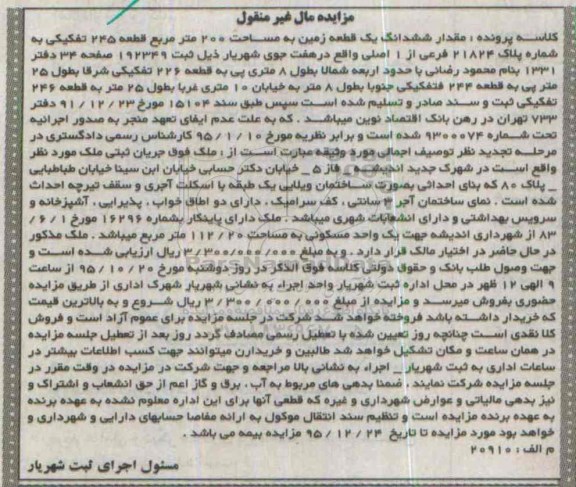 مزایده مال غیر منقول
کلاسه پرونده : مقدار ششدانگ یک قطعه زمین به مساحت ۲۰۰ متر مربع قطعه ۲۴۵ تفکیکی به
شماره پلاک ۲۱۸۲۴ فرعی از ۱ اصلی واقع درهفت جوی شهریار ذیل ثبت ۱۹۲۳۴۹ صفحه ۳۴ دفتر
۱۳۳۱ بنام محمود رضائی با حدود اربعه شمالا بطول ۸ متری پی به قطعه ۲۲۶ تفکیکی شرقا بطول ۲۵
متر پی به قطعه ۲۴۴ فتفکیکی جنوبا بطول ۸ متر به خیابان ۱۰ متری غربا بطول ۲۵ متر به قطعه ۲۴۶
تفکیکی ثبت و سند صادر و تسلیم شده است سپس طبق سند ۱۵۱۰۴ مورخ ۹۱/۱۲/۲۳ دفتر
۷۳۳ تهران در رهن بانک اقتصاد نوین میباشد . که به علت عدم ایفای تعهد منجر به صدور اجرائیه
تحت شماره ۹۳۰۰۰۷۴ شده است و برابر نظریه مورخ ۹۵/۱/۱۰ کارشناس رسمی دادگستری در
مرحله تجدید نظر توصیف اجمالی مورد وثیقه عبارت است از : ملک فوق جریان ثبتی ملک مورد نظر
واقع است در شهرک جدید اندیشه _ فاز ۵ _ خیابان دکتر حسابی خیابان ابن سینا خیابان طباطبایی
_ پلاک ۸۰ که بنای احداثی بصورت ساختمان ویلایی یک طبقه با اسکلت آجری و سقف تیرچه احداث
شده است . نمای ساختمان آجر ۳ سانتی ، کف سرامیک ، دارای دو اطاق خواب ، پذیرایی ، آشپزخانه و
سرویس بهداشتی و دارای انشعابات شهری میباشد . ملک دارای پایانکار بشماره ۱۶۲۹۶ مورخ ۶/۱/
۸۳ از شهرداری اندیشه جهت یک واحد مسکونی به مساحت ۱۱۲/۲۰ متر مربع میباشد . ملک مذکور
در حال حاضر در اختیار مالک قرار دارد . و به مبلغ ۳/۳۰۰/۰۰۰/۰۰۰ ریال ارزیابی شده است و
جهت وصول طلب بانک و حقوق دولتی کلاسه فوق الذکر در روز دوشنبه مورخ ۹۵/۱۰/۲۰ از ساعت
۹ الهی ۱۲ ظهر در محل اداره ثبت شهریار واحد اجراء به نشانی شهریار شهرک اداری از طریق مزایده
حضوری بفروش میرسد و مزایده از مبلغ ۳/۳۰۰/۰۰۰/۰۰۰ ریال شروع و به بالاترین قیمت
که خریدار داشته باشد فروخته خواهد شد شرکت در جلسه مزایده برای عموم آزاد است و فروش
کلا نقدی است چنانچه روز تعیین شده با تعطیل رسمی مصادف گردد روز بعد از تعطیل جلسه مزایده
در همان ساعت و مکان تشکیل خواهد شد طالبین و خریدارن میتوانند جهت کسب اطلاعات بیشتر در
ساعات اداری به ثبت شهریار _ اجراء به نشانی بالا مراجعه و جهت شرکت در مزایده در وقت مقرر در
جلسه مزایده شرکت نمایند . ضمنا بدهی های مربوط به آب ، برق و گاز اعم از حق انشعاب و اشتراک و
نیز بدهی مالیاتی و عوارض شهرداری و غیره که قطعی آنها برای این اداره معلوم نشده به عهده برنده
به عهده برنده مزایده است و تنظیم سند انتقال موکول به ارائه مفاصا حسابهای دارایی و شهرداری و
خواهد بود مورد مزایده تا تاریخ ۹۵/۱۲/۲۴ مزایده بیمه می باشد .
م الف : ۲۰۹۱۰
مسئول اجرای ثبت شهریار